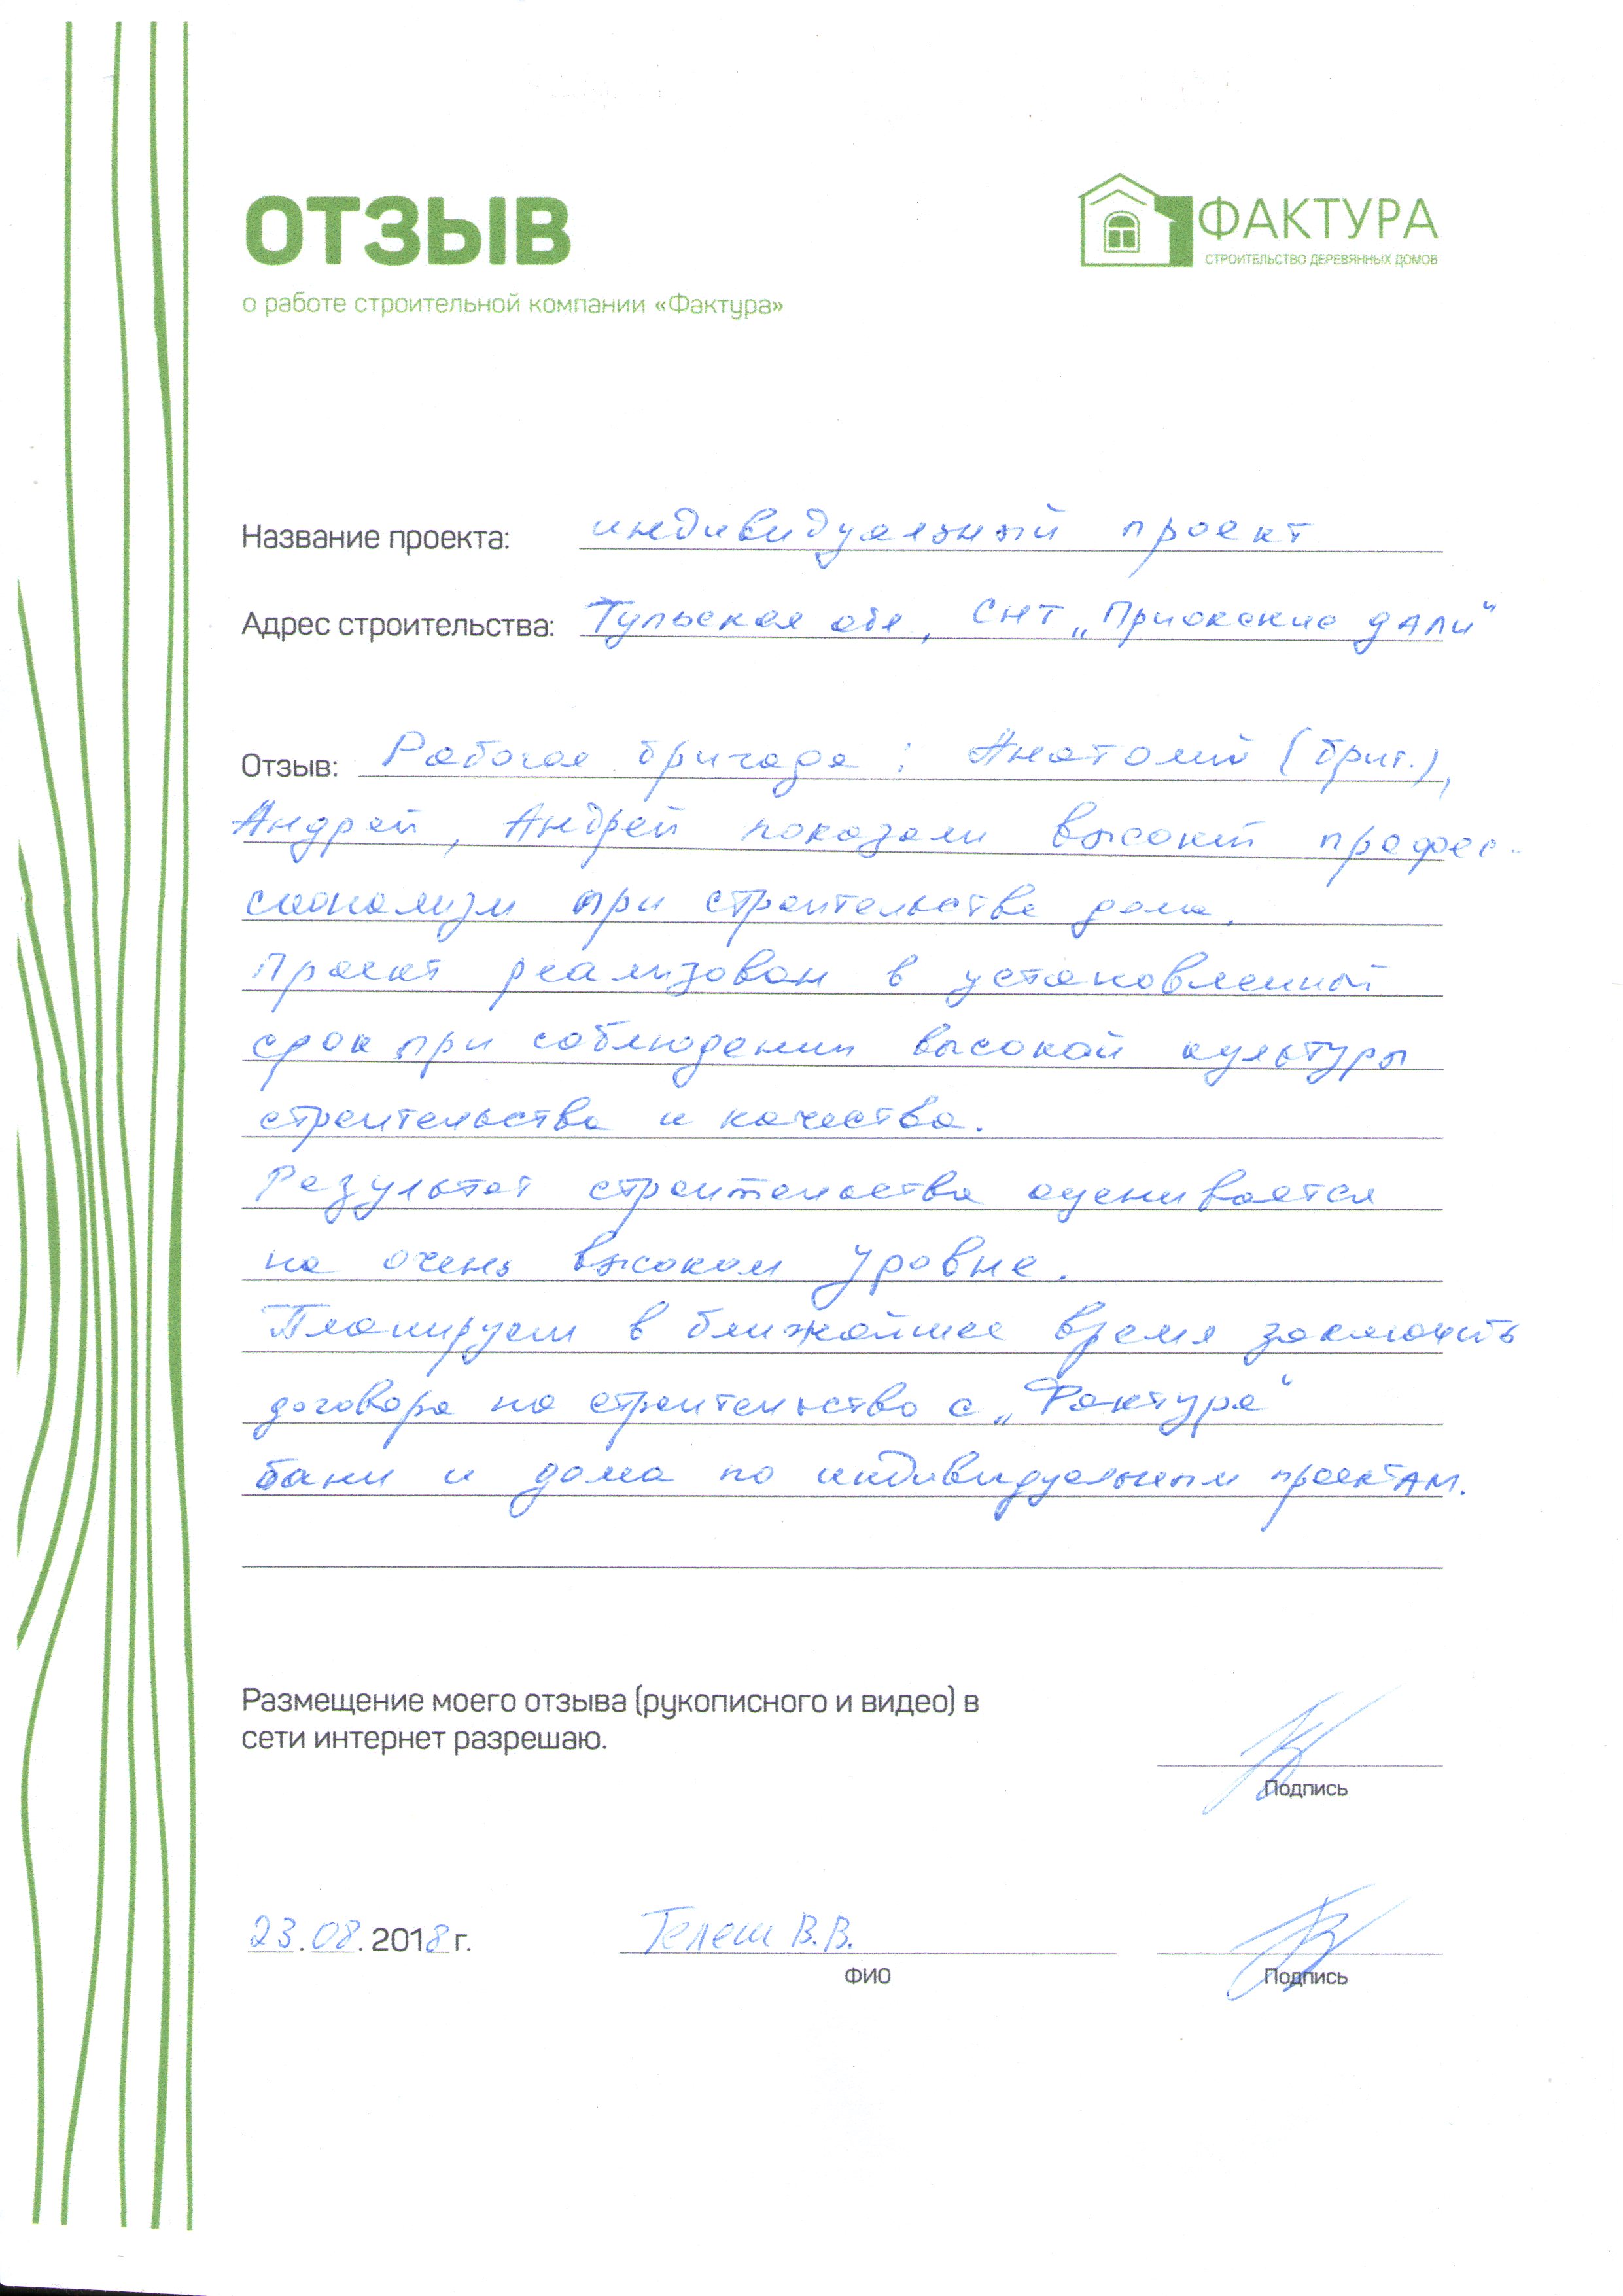 ОТЗЫВ
о работе строительной компании «Фактура»
ФАКТУРА
СТРОИТЕЛЬСТВО ДЕРЕВЯННЫХ ДОМОВ
Название проекта: индивидуальный проект
Адрес строительства: Тульская обл, СНТ „Приокские дали“
Отзыв: Рабочая бригада: Анатолий (бриг.),
Андрей, Андрей показали высокий профес-
сионализм при строительстве дома.
Проект реализован в установленной
срок при соблюдении высокой культуры
строительства и качества.
Результат строительства оценивается
на очень высоком уровне.
Планируем в ближайшее время заключить
договора на строительство с „Фактура“
бани и дома по индивидуальным проектам.
Размещение моего отзыва (рукописного и видео) в
сети интернет разрешаю.
Подпись
23.08.2018г. Телеш В.В.
ФИО Подпись